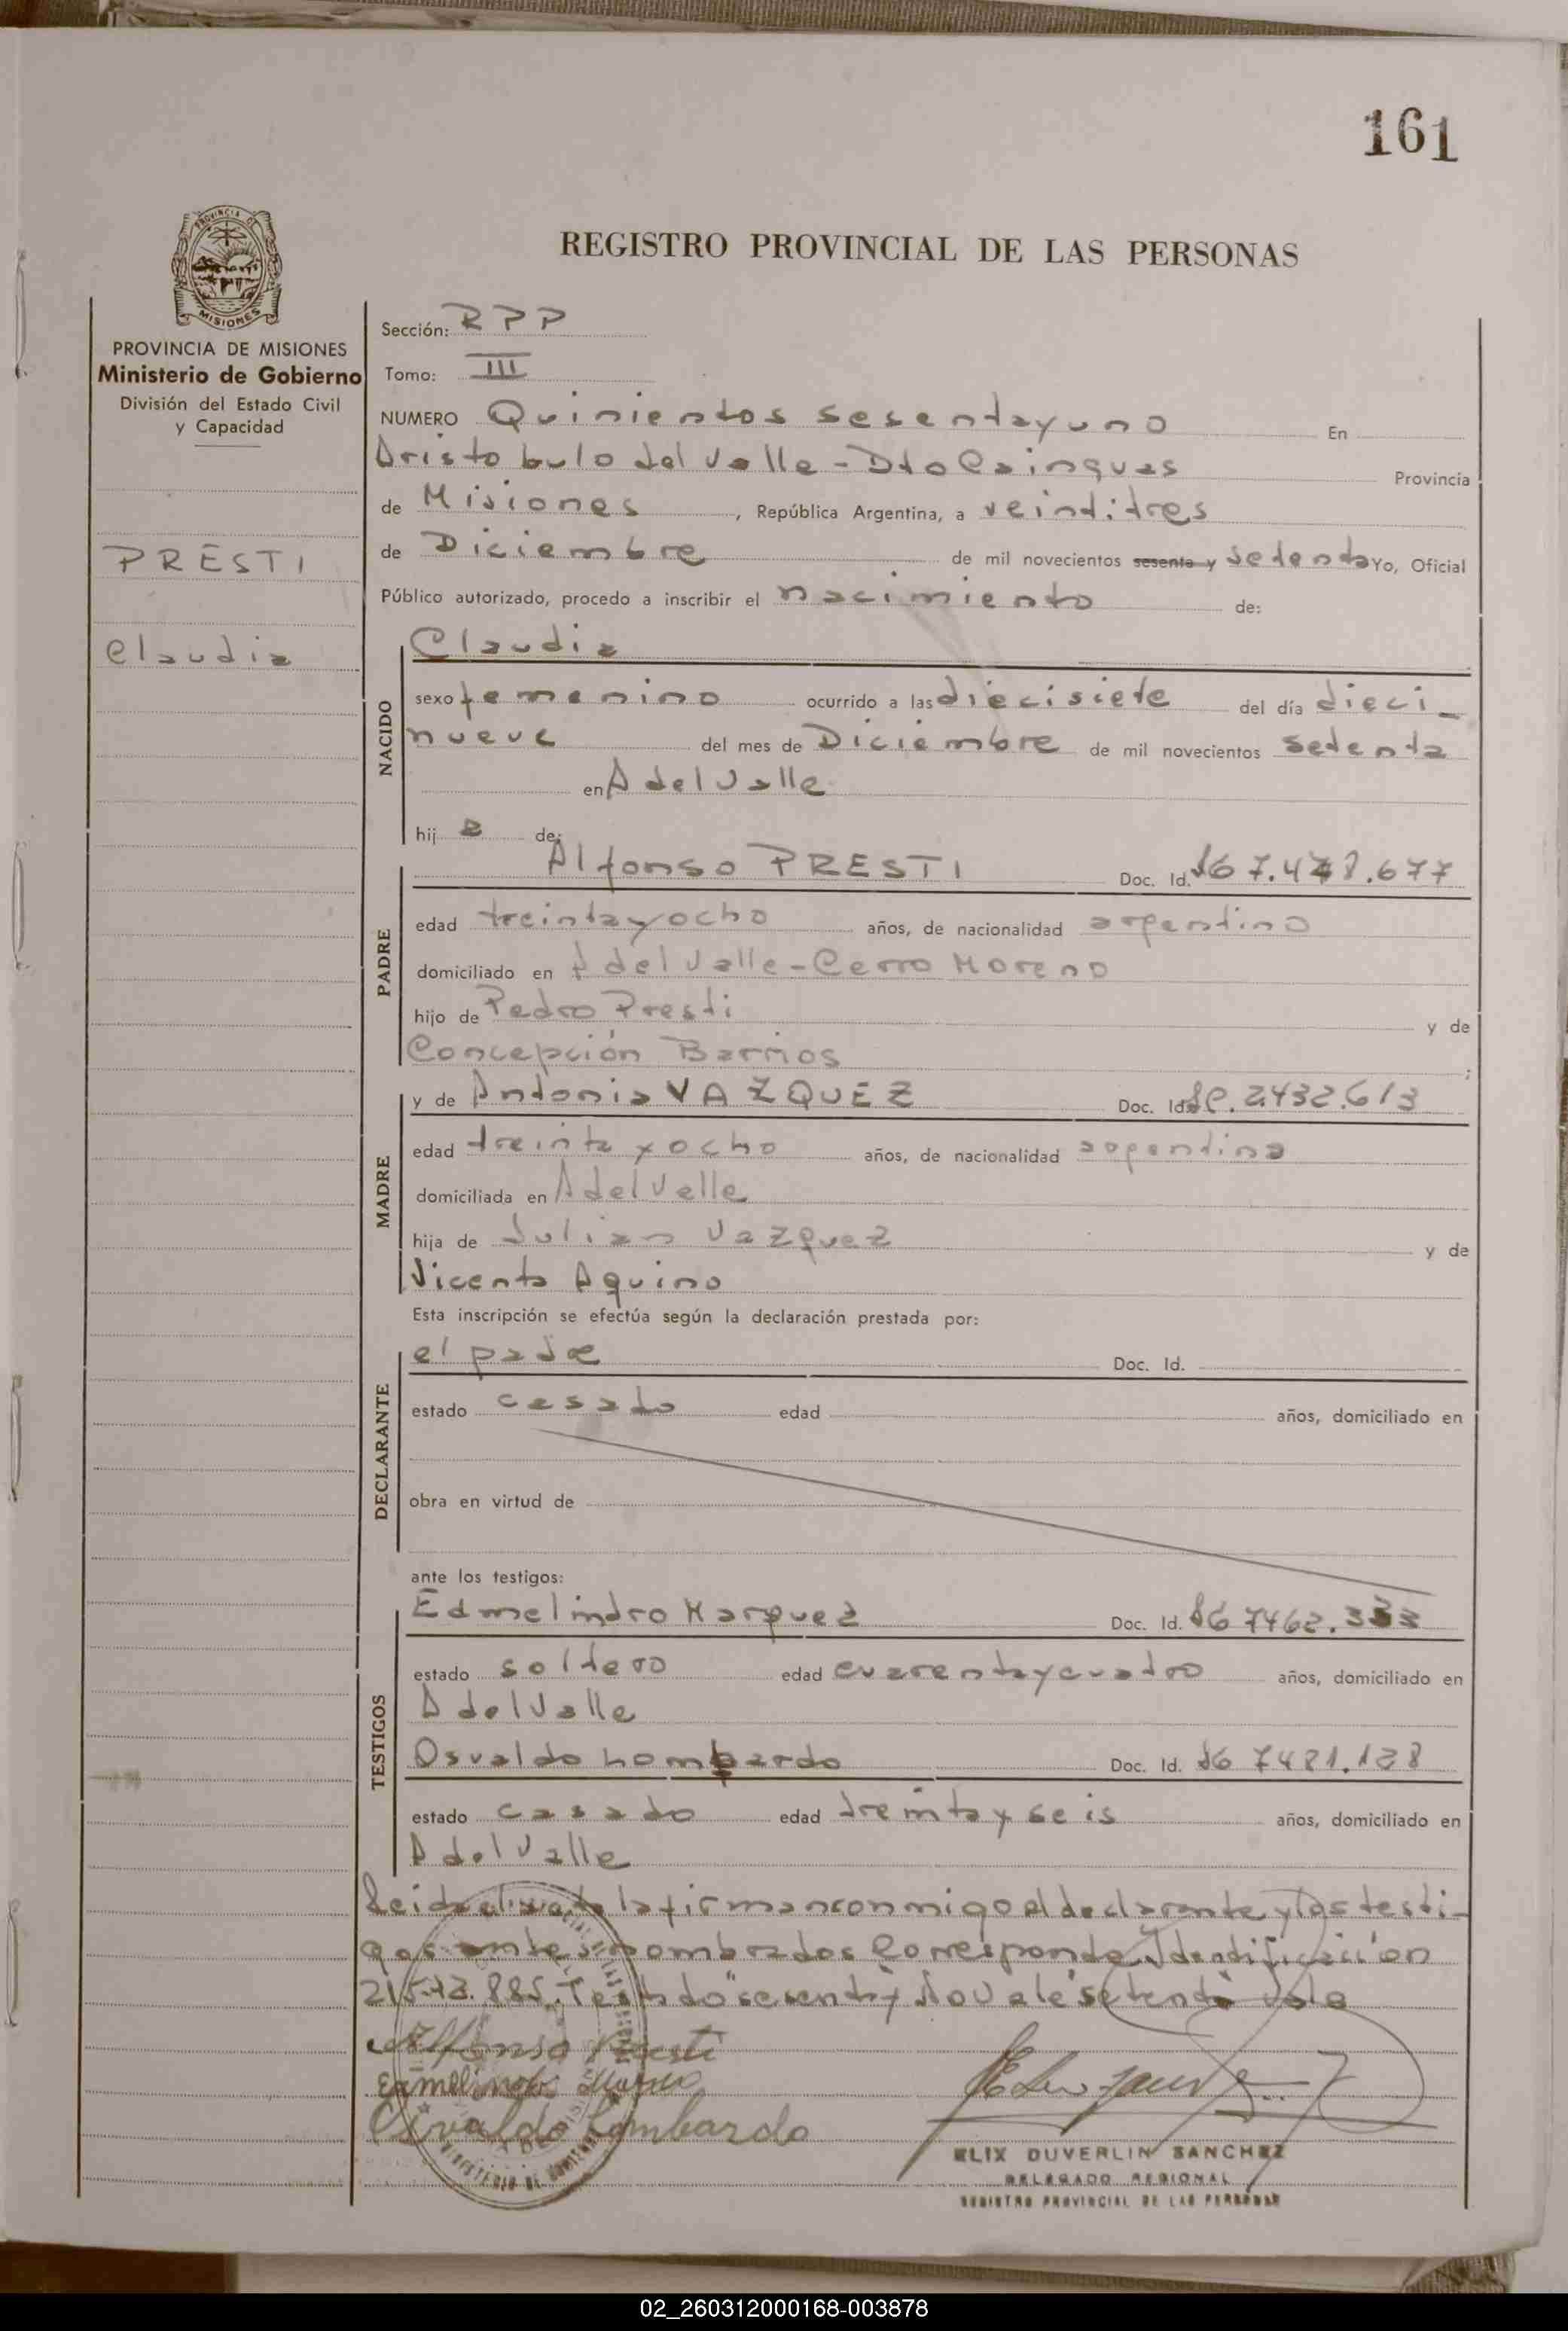 161
PROVINCIA DE
MISIONES
REGISTRO PROVINCIAL DE LAS PERSONAS
PROVINCIA DE MISIONES
Ministerio de Gobierno
División del Estado Civil
y Capacidad
PRESTI
Claudia
Sección: RPP
Tomo: III
NUMERO Quinientos sesentayuno En
Aristobulo del Valle - Dto Cainguas Provincia
de Misiones, República Argentina, a veintitres
de Diciembre de mil novecientos sesenta y setenta Yo, Oficial
Público autorizado, procedo a inscribir el nacimiento de:
NACIDO
Claudia
sexo femenino ocurrido a las diecisiete del día dieci-
nueve del mes de Diciembre de mil novecientos setenta
en A del Valle
hij a de:
PADRE
Alfonso PRESTI Doc. Id. 7.478.677
edad treintayocho años, de nacionalidad argentino
domiciliado en A del Valle - Cerro Moreno
hijo de Pedro Presti y de
Concepción Barrios ;
MADRE
y de Antonia VAZQUEZ Doc. Id. 2.432.613
edad treinta y ocho años, de nacionalidad argentina
domiciliada en A del Valle
hija de Julian Vazquez y de
Vicenta Aquino
Esta inscripción se efectúa según la declaración prestada por:
DECLARANTE
el padre Doc. Id.
estado casado edad años, domiciliado en
obra en virtud de
ante los testigos:
TESTIGOS
Edmelindro Marquez Doc. Id. 7462.333
estado soltero edad cuarentaycuatro años, domiciliado en
A del Valle
Osvaldo Lombardo Doc. Id. 7481.128
estado casado edad treinta y seis años, domiciliado en
A del Valle
Leida el acta la firman conmigo el declarante y los testi-
gos antes nombrados Corresponde Identificación
21.512.885. Testado "sesenta y" No Vale "setenta" Vale
Alfonso Presti
Osvaldo Lombardo
ELIX DUVERLIN SANCHEZ
DELEGADO REGIONAL
REGISTRO PROVINCIAL DE LAS PERSONAS
02_260312000168-003878